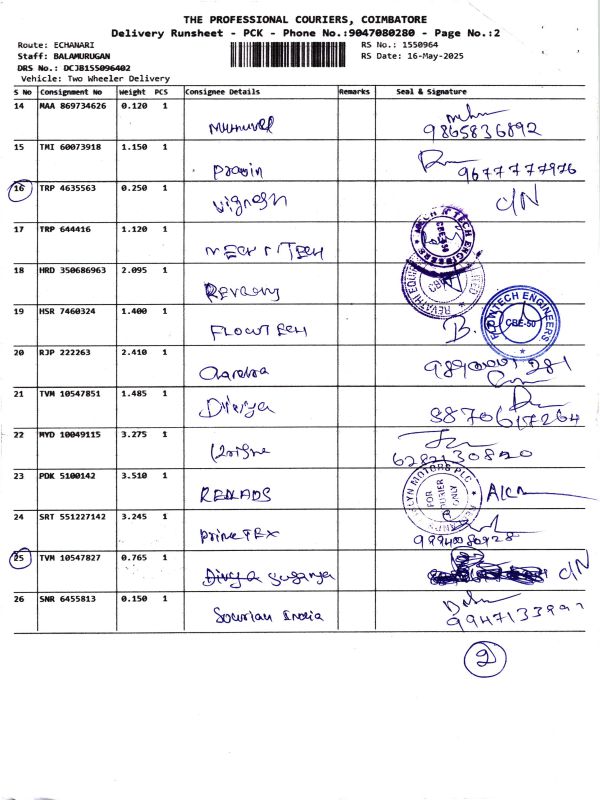 THE PROFESSIONAL COURIERS, COIMBATORE
Delivery Runsheet - PCK - Phone No.:9047080280 - Page No.:2
Route: ECHANARI
RS No.: 1550964
Staff: BALAMURUGAN
RS Date: 16-May-2025
DRS No.: DCJB155096402
Vehicle: Two Wheeler Delivery
S No Consignment No Weight PCS Consignee Details Remarks Seal & Signature
14 MAA 869734626 0.120 1
9865836892
15 TMI 60073918 1.150 1
Pravin 9677777976
16 TRP 4635563 0.250 1
Vignesh C/N
17 TRP 644416 1.120 1
MECH N TECH
MECH N TECH ENGINEERS
CBE-50
18 HRD 350686963 2.095 1
19 HSR 7460324 1.400 1
FLOWTECH B.
FLOWTECH ENGINEERS
CBE-50
20 RJP 222263 2.410 1
21 TVM 10547851 1.485 1
Divya 8870617264
22 MYD 10049115 3.275 1
6282130820
23 PDK 5100142 3.510 1
MOTORS PLC
FOR COURIER ONLY
24 SRT 551227142 3.245 1
Prime TEX 9994080928
25 TVM 10547827 0.765 1
Divya Suganya C/N
26 SNR 6455813 0.150 1
India
2